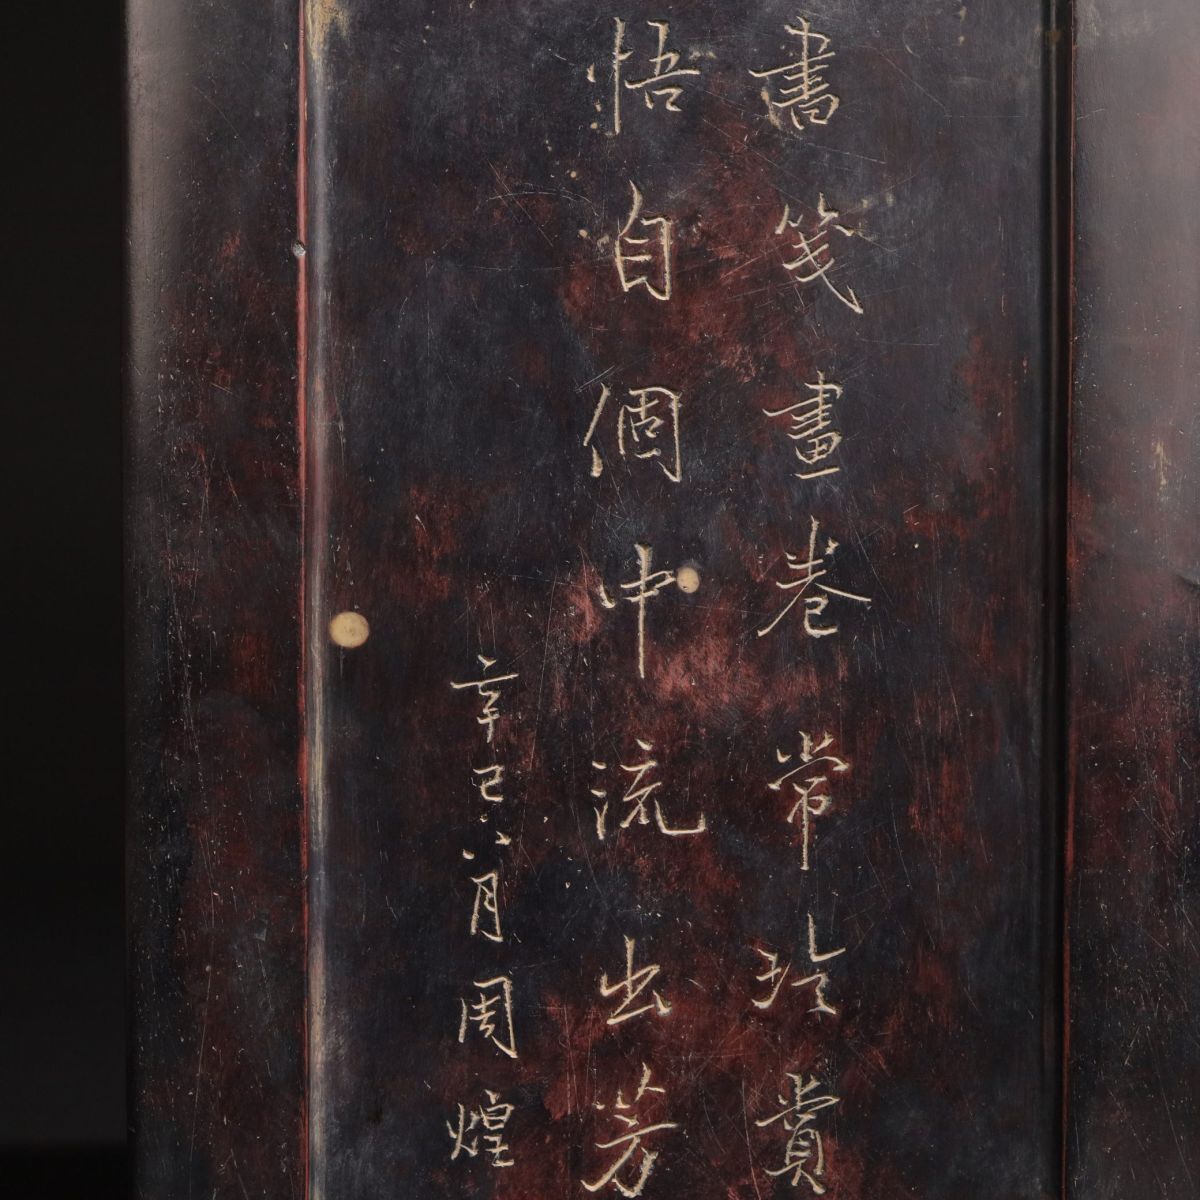 書箋畫卷常珍賞
悟自個中流出芳
辛巳八月周煌